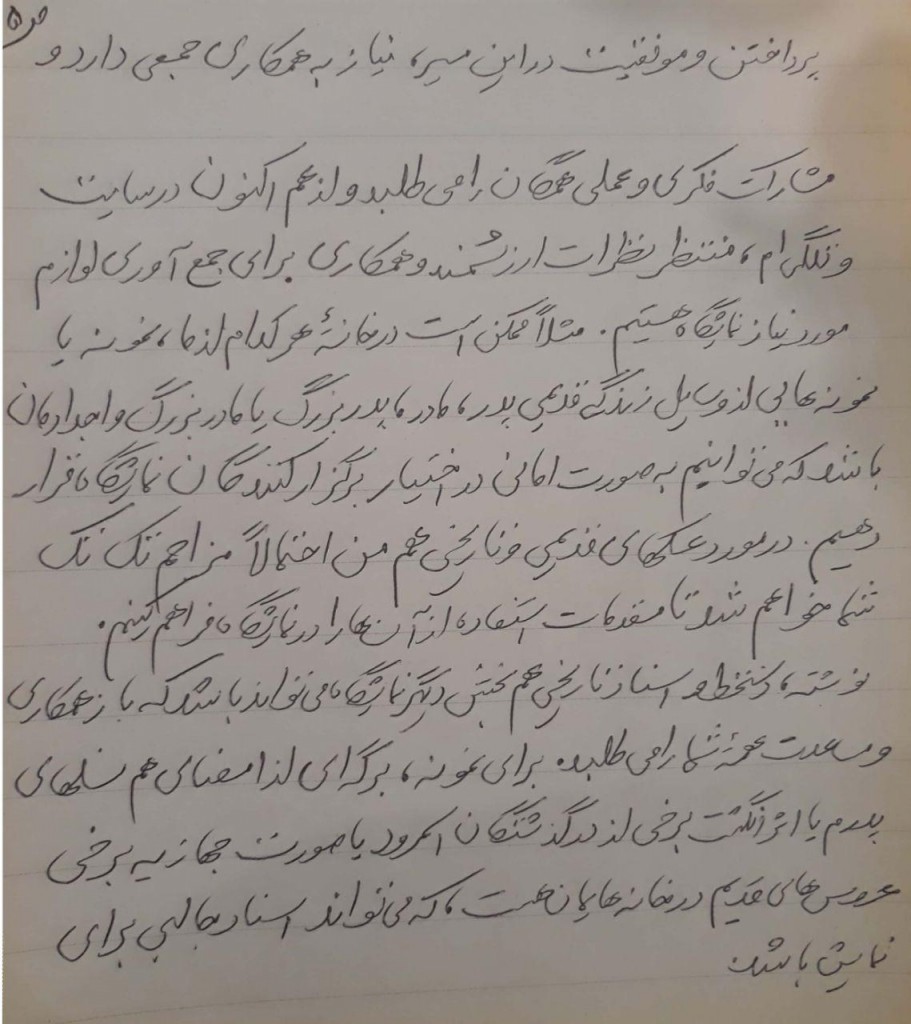 ص ۵
پرداختن و موفقیت در این مسیر، نیاز به همکاری جمعی دارد و
مشارکت فکری و عملی همگان را می طلبد و از هم اکنون در سایت
و تلگرام، منتظر نظرات ارزشمند و همکاری برای جمع آوری لوازم
مورد نیاز نمایشگاه هستیم. مثلاً ممکن است در خانهٔ هر کدام از ما، نمونه یا
نمونه هایی از وسایل زندگی قدیمی پدر، مادر، پدربزرگ یا مادربزرگ و اجدادمان
باشد که می توانیم به صورت امانی در اختیار برگزارکنندگان نمایشگاه قرار
دهیم. در مورد عکسهای قدیمی و تاریخی هم من احتمالاً مزاحم تک تک
شما خواهم شد تا مقدمات استفاده از آن ها را در نمایشگاه فراهم کنیم.
نوشته، دستخط و اسناد تاریخی هم بخش دیگر نمایشگاه می تواند باشد که باز همکاری
و مساعدت همهٔ شما را می طلبد. برای نمونه، برگه ای از امضای هم نسلهای
پدرم یا اثر انگشت برخی از درگذشتگان امرود یا صورت جهازیه برخی
عروس های قدیم در خانه هایمان هست، که می تواند اسناد جالبی برای
نمایش باشد